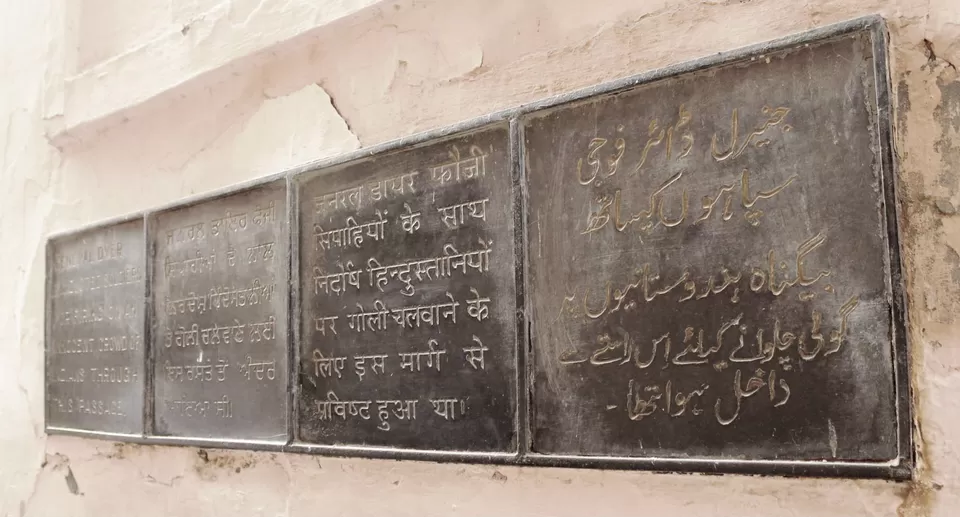 DYER
INNOCENT CROWD OF
THROUGH
THIS PASSAGE.
ਜਨਰਲ ਡਾਇਰ ਫੌਜੀ
ਦੇ ਨਾਲ
ਤੇ ਗੋਲੀ ਚਲਵਾਣੇ ਲਈ
ਇਸ ਰਸਤੇ ਤੋਂ ਅੰਦਰ
ਸੀ।
जनरल डायर फौजी
सिपाहियों के साथ
निर्दोष हिन्दुस्तानियों
पर गोली चलवाने के
लिए इस मार्ग से
प्रविष्ट हुआ था।
جنیرل ڈائر فوجی
سپاہیوں کیساتھ
بیگناہ ہندوستانیوں پر
گولی چلوانے کیلئے اس راستے سے
داخل ہوا تھا -